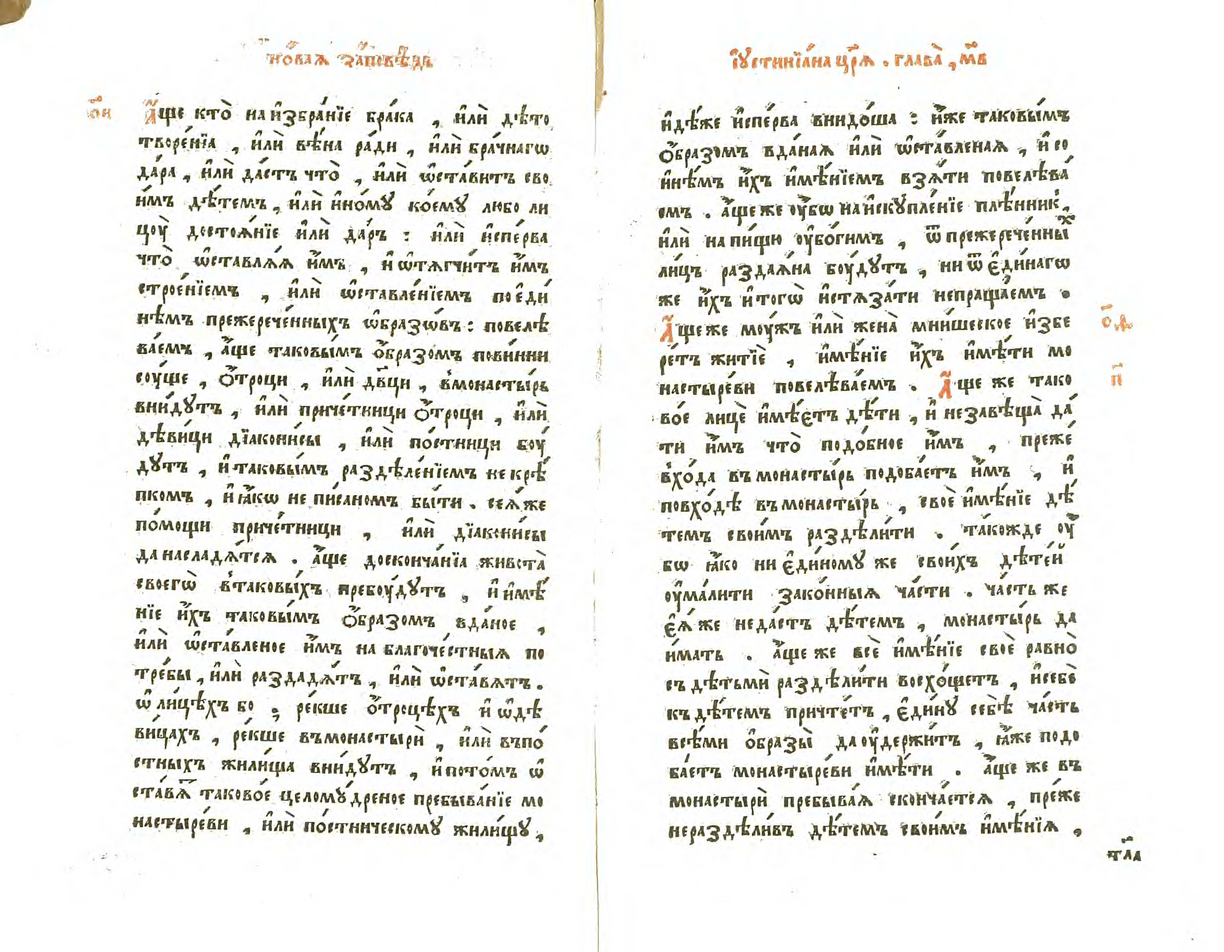 но́вая за́повѣдь
о҃и
А҆́ще кто̀ на и҆збра́нїе бра́ка , и҆лѝ дѣ́то
творе́нїа , и҆лѝ вѣ́на ра́ди , и҆лѝ бра́чнагѡ
да́ра , и҆лѝ да́стъ что̀ , и҆лѝ ѡ҆ста́витъ сво
и҆́мъ дѣ́темъ , и҆лѝ и҆но́мꙋ ко́емꙋ любо ли
цꙋ̀ достоѧ́нїе и҆лѝ да́ръ : и҆лѝ и҆спе́рва
что̀ ѡ҆ставлѧ́ѧ и҆̀мъ , и҆ ѡ҆тѧгчи́тъ и҆̀мъ
строе́нїемъ , и҆лѝ ѡ҆ставле́нїемъ по є҆ди
нѣ́мъ прежерече́нныхъ ѡ҆́бразѡвъ : повелѣ
ва́емъ , а҆́ще таковы́мъ ѻ҆́бразомъ пови́нни
сꙋ́ще , ѻ҆́троци , и҆лѝ дв҃ци , в̾монасты́рь
вни́дꙋтъ , и҆лѝ приче́тници ѻ҆́троци , и҆лѝ
дѣви́ци дїа́конисы , и҆лѝ по́стници боу́
дꙋтъ , и҆ таковы́мъ раздѣле́нїемъ не крѣ́
пкомъ , и҆ ꙗ҆́кѡ не пи́саномъ бы́ти . сеѧ́ же
по́мощи приче́тници , и҆лѝ дїа́конисы
да насладѧ́тсѧ . а҆́ще до сконча́нїа живота̀
своегѡ̀ в̾таковы́хъ пребоу́дꙋтъ , и҆ и҆мѣ́
нїе и҆́хъ таковы́мъ ѻ҆́бразомъ вда́ное ,
и҆лѝ ѡ҆ста́вленое и҆̀мъ на благоче́стныѧ по
тре́бы , и҆лѝ раздадѧ́тъ , и҆лѝ ѡ҆ста́вѧтъ .
ѡ҆ ли́цѣхъ бо , ре́кше ѻ҆́троцѣхъ и҆ ѡ҆ дѣ
ви́цахъ , ре́кше въ монастырѝ , и҆лѝ въ по́
стныхъ жили́ща вни́дꙋтъ , и҆ пото́мъ ѡ҆
ста́вѧ таково́е целомꙋ́дреное пребыва́нїе мо
настыре́ви , и҆лѝ по́стническомꙋ жили́щꙋ ,
і҆ꙋстинїа́на цр҃ѧ . глава̀ , м҃в
и҆дѣ́же и҆спе́рва внидо́ша : и҆̀же таковы́мъ
ѻ҆́бразомъ вда́наѧ и҆лѝ ѡ҆ста́вленаѧ , и҆ со
и҆нѣ́мъ и҆́хъ и҆мѣ́нїемъ взѧ́ти повелѣва́
емъ . а҆́ще же оу҆́бѡ на и҆скꙋпле́нїе плѣ́нникⷯ ,
и҆лѝ на пи́щю оу҆бо́гимъ , ѿ прежерече́нныⷯ
ли́цъ раздаѧ́на боу́дꙋтъ , ни ѿ є҆ди́нагѡ
же и҆́хъ и҆ того̀ и҆стѧза́ти непраща́емъ .
А҆́ще же мꙋ́жъ и҆лѝ жена̀ мни́шеское и҆збе
ре́тъ житїѐ , и҆мѣ́нїе и҆́хъ и҆мѣ́ти мо
настыре́ви повелѣва́емъ . А҆́ще же тако
во́е лицѐ и҆мѣ́етъ дѣ́ти , и҆ не завѣща̀ да́
ти и҆̀мъ что̀ подо́бное и҆̀мъ , пре́же
вхо́да въ монасты́рь подоба́етъ и҆̀мъ , и҆
по вхо́дѣ въ монасты́рь , своѐ и҆мѣ́нїе дѣ́
темъ свои́мъ раздѣли́ти . та́кожде оу҆́
бѡ ꙗ҆́ко ни є҆ди́номꙋ же свои́хъ дѣте́й
оу҆ма́лити зако́нныѧ ча́сти . ча́сть же
є҆ѧ́же неда́стъ дѣ́темъ , монасты́рь да
и҆́мать . а҆́ще же всѐ и҆мѣ́нїе своѐ равно̀
съ дѣтьмѝ раздѣли́ти восхо́щетъ , и҆ себѐ
къ дѣ́темъ причте́тъ , є҆ди́нꙋ себѣ̀ ча́сть
все́ми ѻ҆́бразы да оу҆держи́тъ , ꙗ҆́же подо
ба́етъ монастыре́ви и҆мѣ́ти . а҆́ще же въ
монастырѝ пребыва́ѧ сконча́етсѧ , пре́же
нераздѣли́въ дѣ́темъ свои́мъ и҆мѣ́нїѧ ,
о҃ѳ
п҃
тл҃а